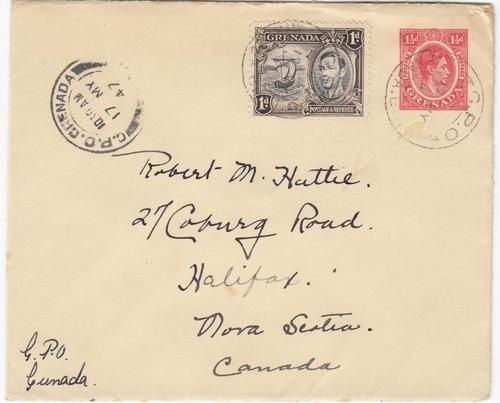 G.P.O. GRENADA
10 10 AM
17 MY
47
GRENADA
1d
1d
POSTAGE & REVENUE
1½d 1½d
GRENADA
G.P.O
Robert M. Hattie.
27 Coburg Road.
Halifax.
Nova Scotia.
Canada
G.P.O.
Grenada.